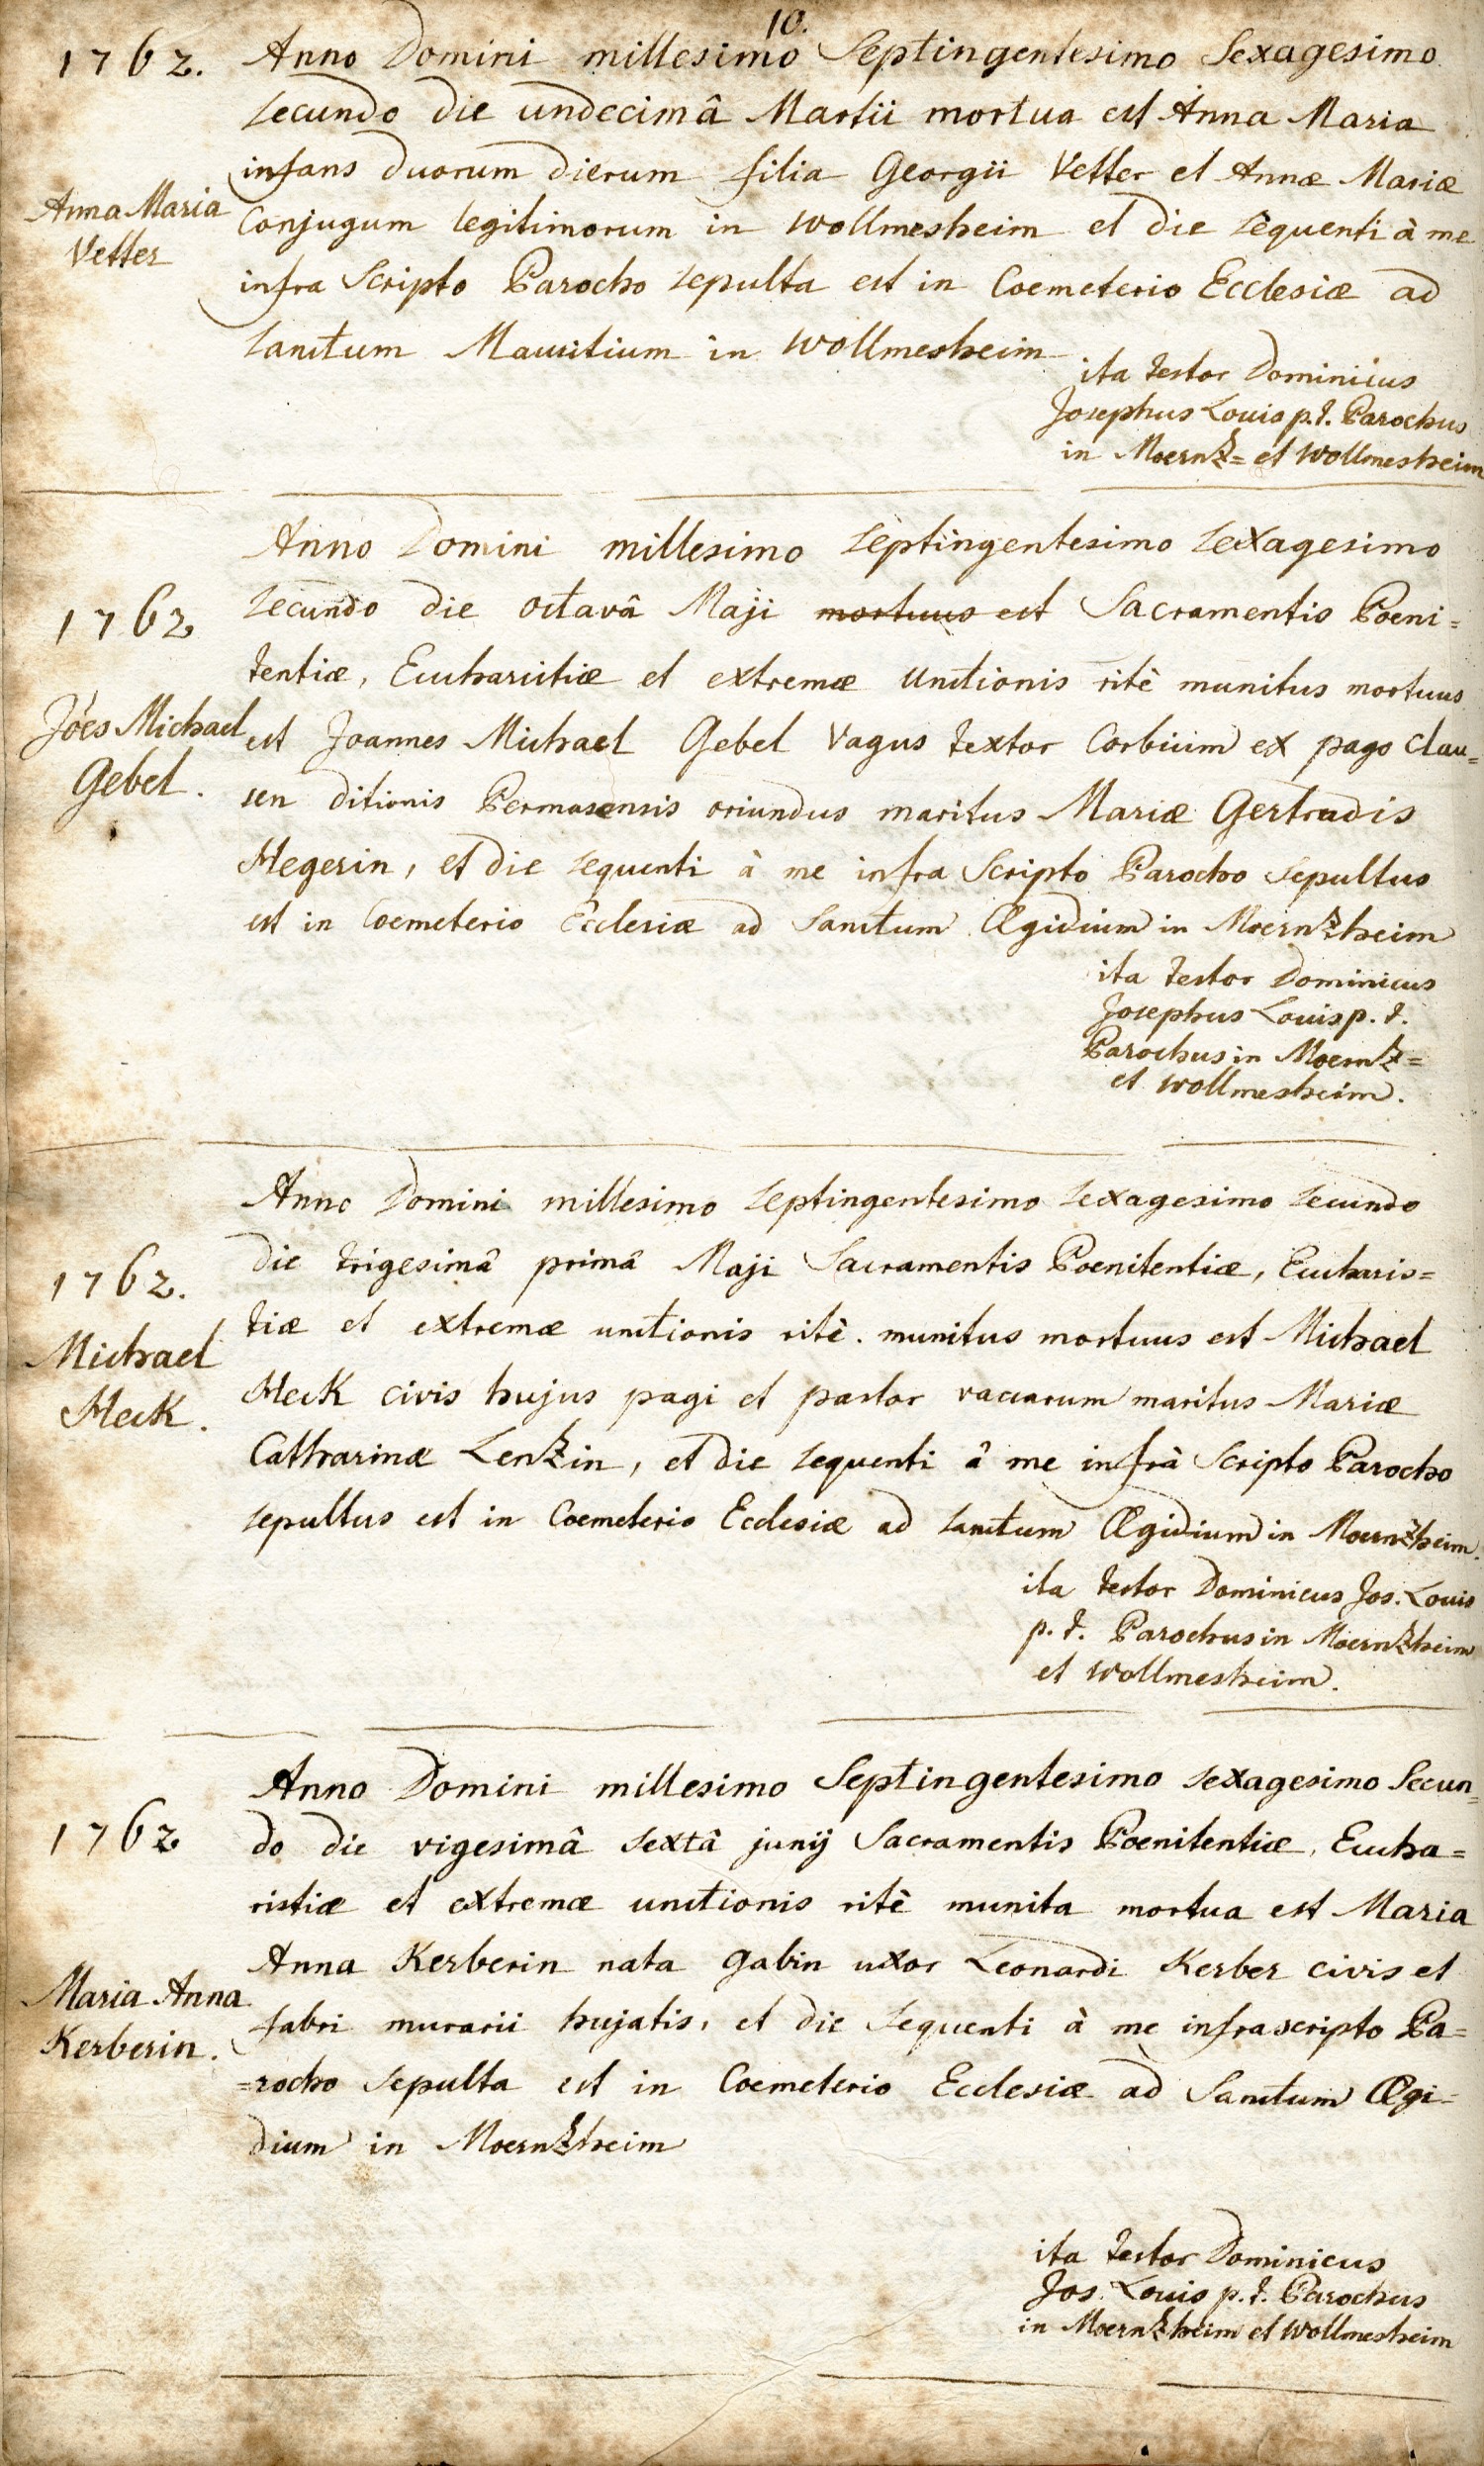 10.
1762. Anno Domini millesimo Septingentesimo Sexagesimo
secundo die undecimâ Martii mortua est Anna Maria
infans duorum dierum filia Georgii Vetter et Annæ Mariæ
Anna Maria
Vetter
Conjugum legitimorum in Wollmesheim et die sequenti à me
infra Scripto Parocho sepulta est in Coemeterio Ecclesiæ ad
sanctum Mauritium in Wollmesheim
ita testor Dominicus
Josephus Louis p.t. Parochus
in Moernz= et Wollmesheim
Anno Domini millesimo septingentesimo sexagesimo
1762
secundo die octavâ Maji mortuus est Sacramentis Poeni=
tentiæ, Eucharistiæ et extremæ Unctionis ritè munitus mortuus
Jóes Michael
Gebel.
est Joannes Michael Gebel Vagus textor Corbium ex pago Clau=
sen ditionis Permasensis oriundus maritus Mariæ Gertrudis
Hegerin, et die sequenti à me infra Scripto Parocho Sepultus
est in Coemeterio Ecclesiæ ad Sanctum Ægidium in Moernzheim
ita testor Dominicus
Josephus Louis p.t.
Parochus in Moernz=
et Wollmesheim.
Anno Domini millesimo septingentesimo sexagesimo secundo
1762.
die trigesimâ primâ Maji Sacramentis Poenitentiæ, Eucharis=
tiæ et extremæ unctionis ritè. munitus mortuus est Michael
Michael
Heck.
Heck civis hujus pagi et pastor vaccarum maritus Mariæ
Catharinæ Lenzin, et die sequenti â me infrà Scripto Parocho
sepultus est in Coemeterio Ecclesiæ ad sanctum Ægidium in Moernzheim.
ita testor Dominicus Jos. Louis
p.t. Parochus in Moernzheim
et Wollmesheim.
Anno Domini millesimo Septingentesimo sexagesimo Secun=
1762
do die vigesimâ sextâ junij Sacramentis Poenitentiæ, Eucha=
ristiæ et extremæ unctionis ritè munita mortua est Maria
Anna Kerberin nata Gabin uxor Leonardi Kerber civis et
Maria Anna
Kerberin.
fabri murarii hujatis, et die Sequenti à me infrascripto Pa=
=rocho Sepulta est in Coemeterio Ecclesiæ ad Sanctum Ægi=
dium in Moernzheim
ita testor Dominicus
Jos. Louis p.t. Parochus
in Moernzheim et Wollmesheim